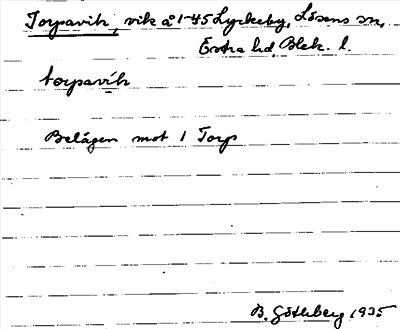 Torpavik, vik å 1-45 Lyckeby, Lösens sn,
Östra hd, Blek. l.
torpavik
Belägen mot 1 Torp
B. Göthberg 1935